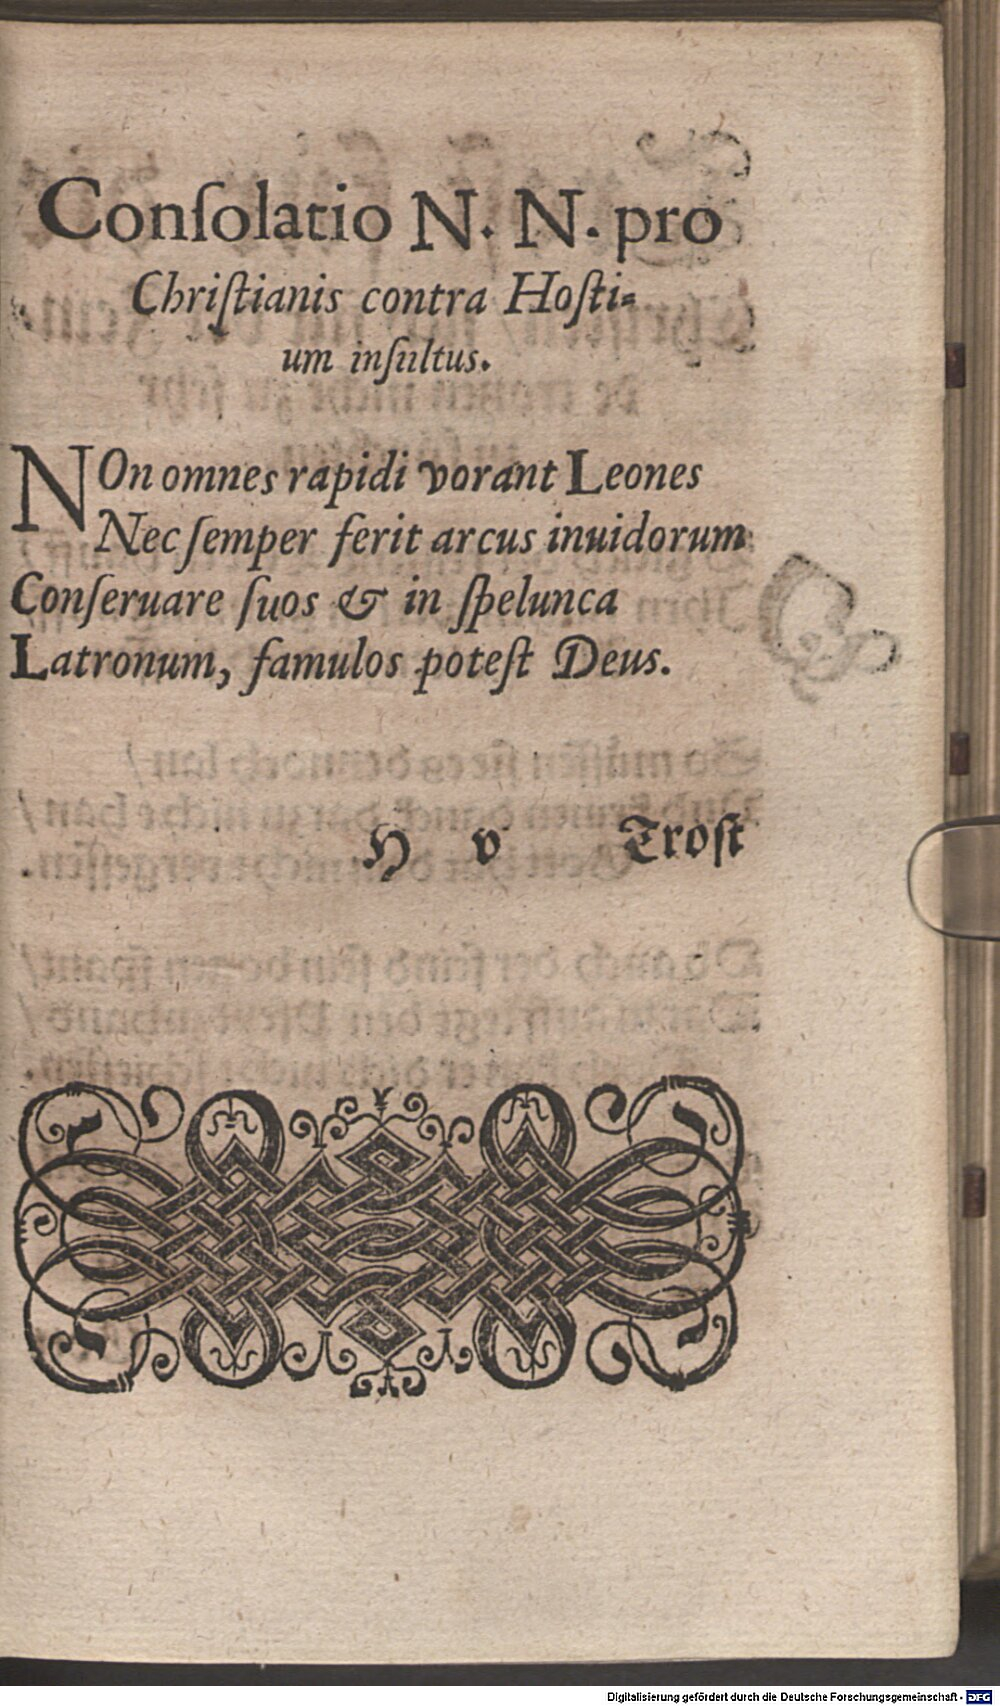 Conſolatio N. N. pro
Chriſtianis contra Hoſti⸗
um inſultus.
NOn omnes rapidi vorant Leones
Nec ſemper ferit arcus inuidorum
Conſeruare ſuos & in ſpelunca
Latronum, famulos poteſt Deus.
H v Troſt
Digitalisierung gefördert durch die Deutsche Forschungsgemeinschaft - DFG